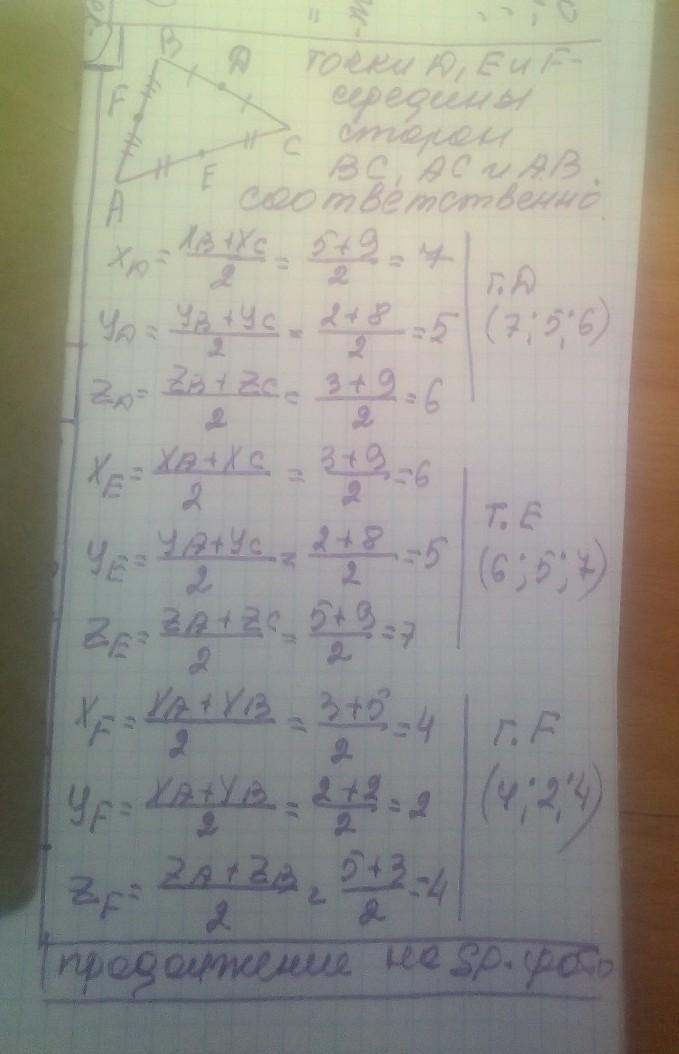 B
D
F
C
E
A
точки D, E и F-
середины
сторон
BC, AC и AB
соответственно.
X_D = (X_B + X_C)/2 = (5+9)/2 = 7
y_D = (y_B + y_C)/2 = (2+8)/2 = 5
Z_D = (Z_B + Z_C)/2 = (3+9)/2 = 6
т. D
(7; 5; 6)
X_E = (X_A + X_C)/2 = (3+9)/2 = 6
y_E = (y_A + y_C)/2 = (2+8)/2 = 5
Z_E = (Z_A + Z_C)/2 = (5+9)/2 = 7
т. E
(6; 5; 7)
X_F = (X_A + X_B)/2 = (3+5)/2 = 4
y_F = (y_A + y_B)/2 = (2+2)/2 = 2
Z_F = (Z_A + Z_B)/2 = (5+3)/2 = 4
т. F
(4; 2; 4)
продолжение на др. фото